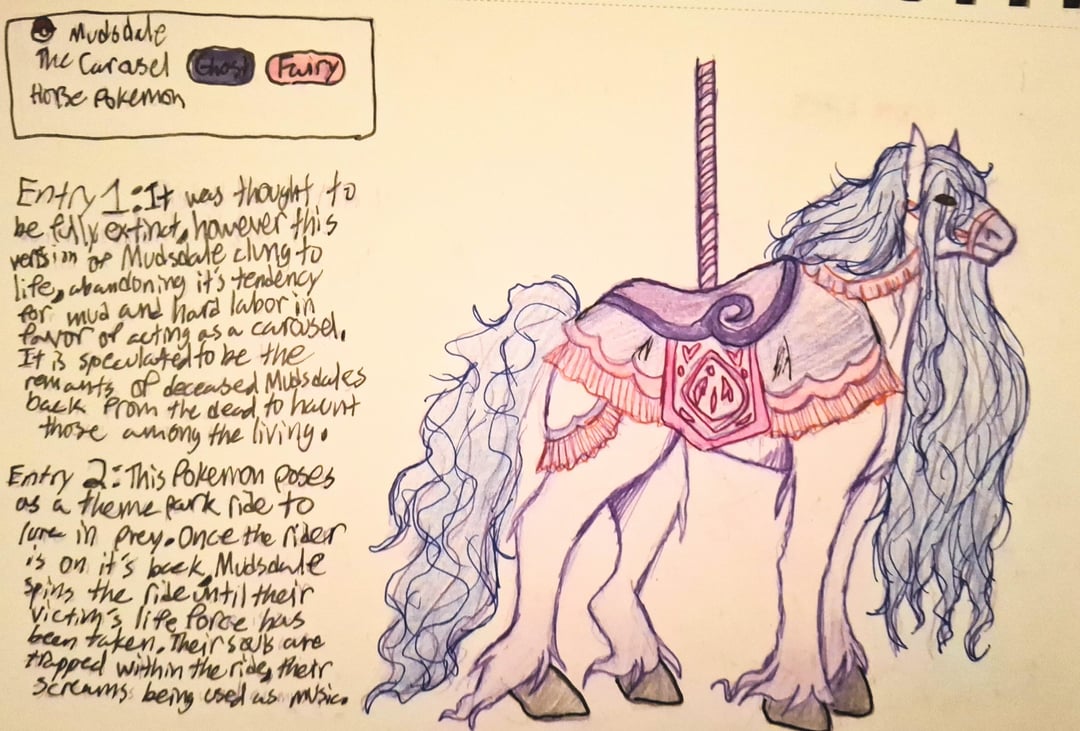 Mudsdale
The Carousel Ghost Fairy
Horse Pokemon
Entry 1: It was thought to
be fully extinct, however this
version of Mudsdale clung to
life, abandoning it's tendency
for mud and hard labor in
favor of acting as a carousel.
It is speculated to be the
remants of deceased Mudsdales
back from the dead to haunt
those among the living.
Entry 2: This Pokemon poses
as a theme park ride to
lure in prey. Once the rider
is on it's back, Mudsdale
spins the ride until their
victim's life force has
been taken. Their souls are
trapped within the ride, their
screams being used as music.